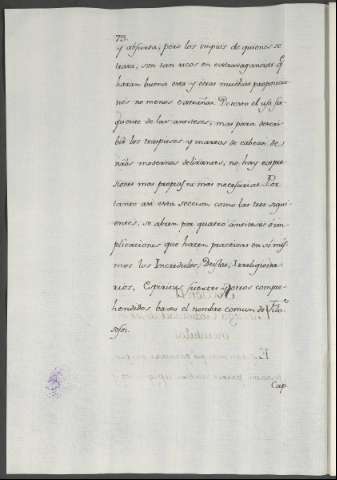 73.
y absurda; pero los impios de quienes se
trata, son tan ricos en extravagancias q.e
haran buena esta y otras muchas proposicio
nes no menos extrañas. Descaro el usa fre
quente de las antiteses; mas para descri
bir los traspieses y mareos de cabeza de
modernos delirantes, no hay expre
siones mas propias ni mas necesarias. Por
tanto asi esta seccion como las tres sigui
entes, se abren por quatro antiteses ò im
plicaciones que hacen practicas en si mis
mos los Incredulos, Deistas, Irreligiona
rios, Espiritus fuertes y otros compre
hendidos baxo el nombre comun de Filo
sofos.
Cap.